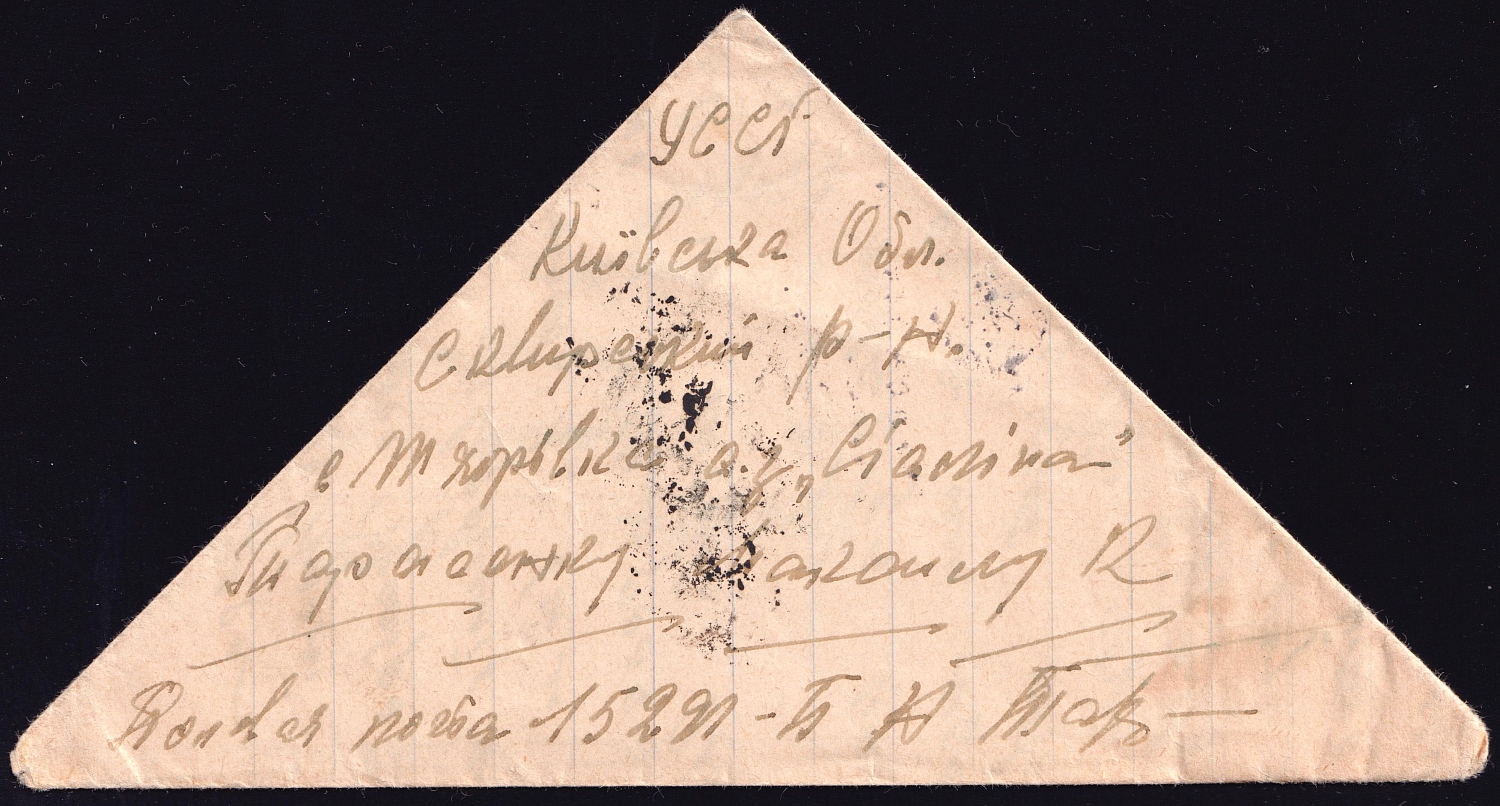 УССР
Київська Обл.
Сквирський р-н.
с Тхорівка а/я „Сталіна"
Тарасенку Максиму К
Полевая почта 15291-Б Н Тар